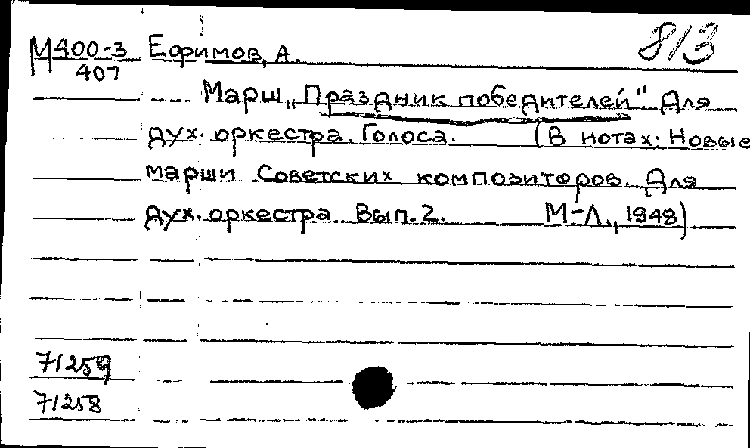 М400-3 Ефимов, А. 813
407
Марш „Праздник победителей" Для
дух. оркестра. Голоса. (В нотах: Новые
марши Советских композиторов. Для
дух. оркестра. Вып. 2. М-Л., 1948)
71259
71258